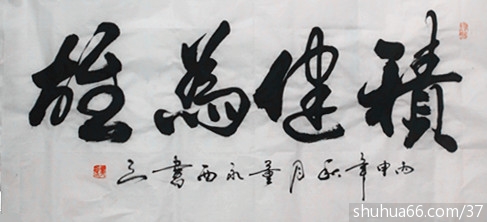 積健為雄
丙申年秋月董永西書
shuhua66.com/37